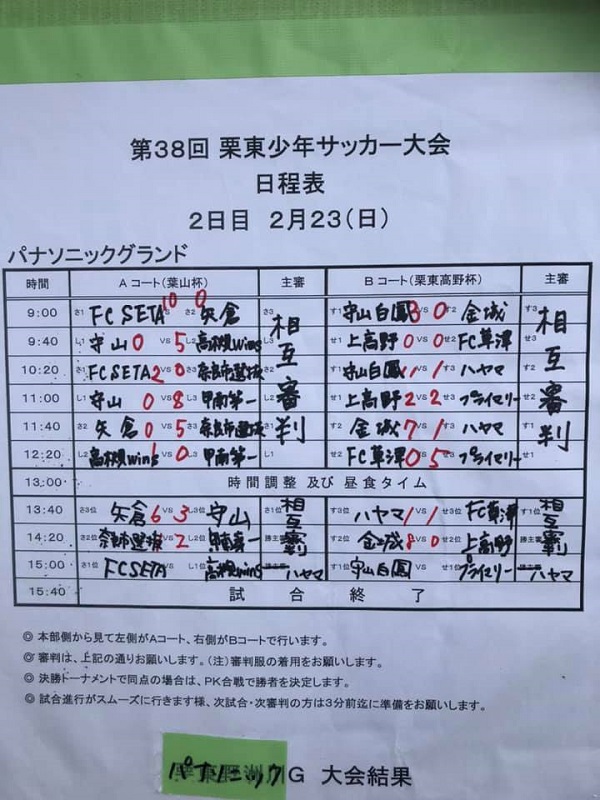 第38回 栗東少年サッカー大会
日程表
2日目 2月23(日)
パナソニックグランド
時間 Aコート(葉山杯) 主審 Bコート(栗東高野杯) 主審
9:00 さ1 FC SETA 10 0 さ2 矢倉 さ3 す1 守山白鳳 8 VS 0 す2 金城 す3
9:40 し1 守山 0 VS 5 し2 高槻wing し3 せ1 上高野 0 VS 0 せ2 FC草津 せ3
10:20 さ1 FC SETA 2 VS 0 さ3 奈良市選抜 さ2 す1 守山白鳳 1 1 す3 ハヤマ す2
11:00 し1 守山 0 VS 8 し3 甲南第一 し2 せ1 上高野 2 VS 2 せ3 プライマリー せ2
11:40 さ2 矢倉 0 VS 5 さ3 奈良市選抜 さ1 す2 金城 7 VS 1 す3 ハヤマ す1
12:20 し2 高槻wing VS 0 し3 甲南第一 し1 せ2 FC草津 0 VS 5 せ3 プライマリー せ1
相互審判 相互審判
13:00 時間調整 及び 昼食タイム
13:40 さ3位 矢倉 6 VS 3 し3位 守山 さ1位 す3位 ハヤマ 1 VS 1 せ3位 FC草津 す1位
14:20 さ2位 奈良市選抜 VS 2 し2位 甲南第一 勝主審 す2位 金城 8 VS 0 せ2位 上高野 勝主審
相互審判 相互審判
15:00 さ1位 FC SETA VS し1位 高槻wing ハヤマ す1位 守山白鳳 VS せ1位 プライマリー ハヤマ
15:40 試合終了
◎ 本部側から見て左側がAコート、右側がBコートで行います。
◎ 審判は、上記の通りお願いします。(注)審判服の着用をお願いします。
◎ 決勝トーナメントで同点の場合は、PK合戦で勝者を決定します。
◎ 試合進行がスムーズに行きます様、次試合・次審判の方は3分前迄に準備をお願いします。
パナソニックG 大会結果